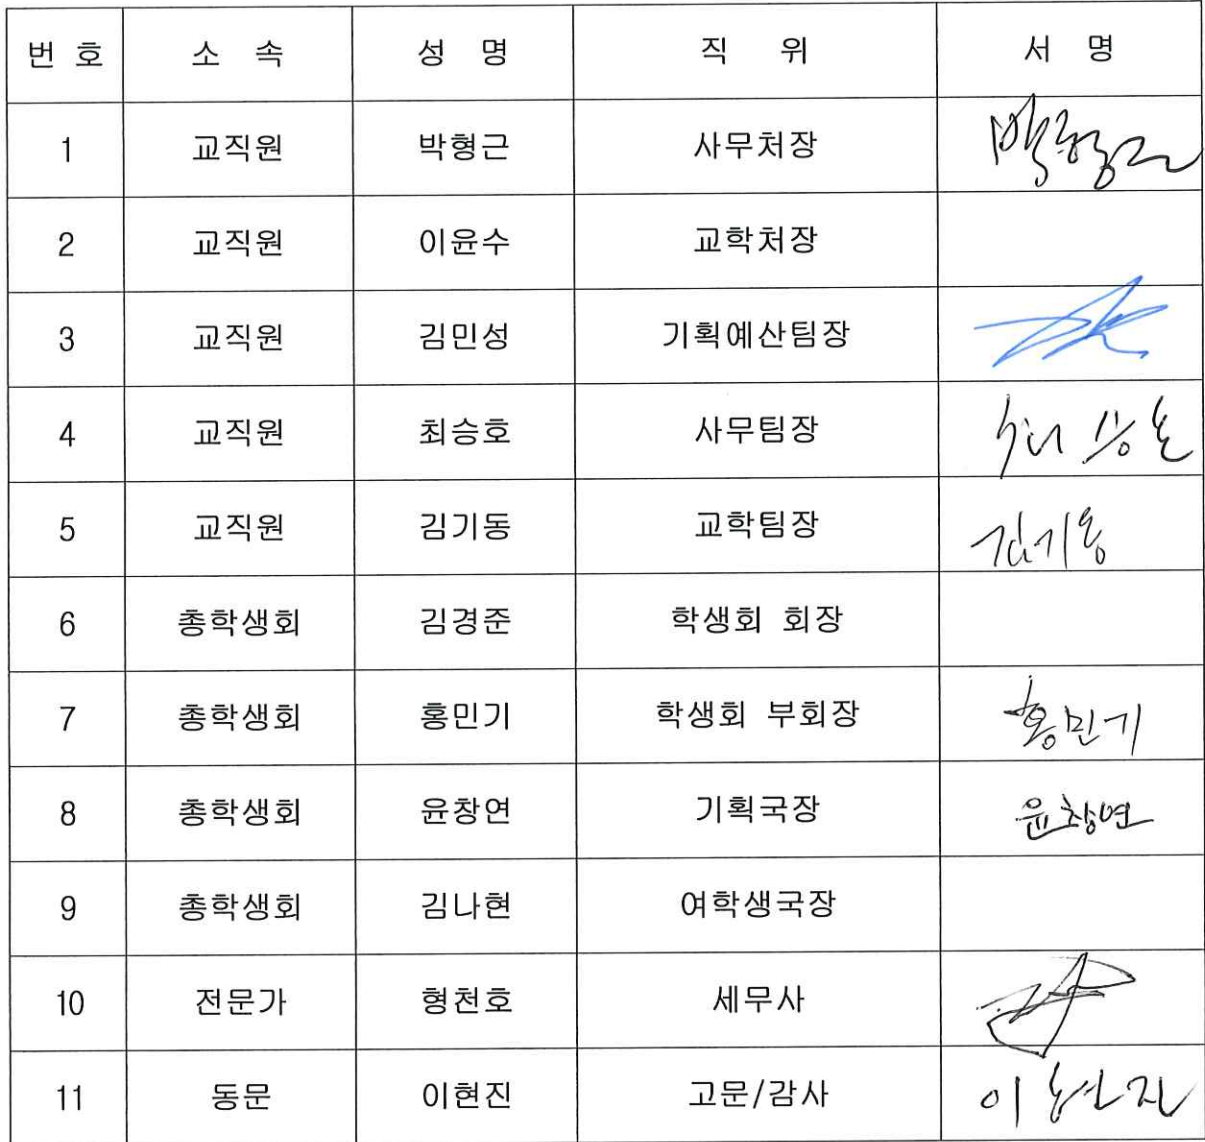 번 호 소 속 성 명 직 위 서 명
1 교직원 박형근 사무처장 박형근
2 교직원 이윤수 교학처장
3 교직원 김민성 기획예산팀장
4 교직원 최승호 사무팀장 최승호
5 교직원 김기동 교학팀장 김기동
6 총학생회 김경준 학생회 회장
7 총학생회 홍민기 학생회 부회장 홍민기
8 총학생회 윤창연 기획국장 윤창연
9 총학생회 김나현 여학생국장
10 전문가 형천호 세무사
11 동문 이현진 고문/감사 이현진